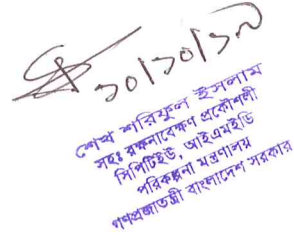 ১০/১০/১৭
শেখ শরিফুল ইসলাম
সহঃ রক্ষনাবেক্ষণ প্রকৌশলী
সিপিটিইউ, আইএমইডি
পরিকল্পনা মন্ত্রণালয়
গণপ্রজাতন্ত্রী বাংলাদেশ সরকার